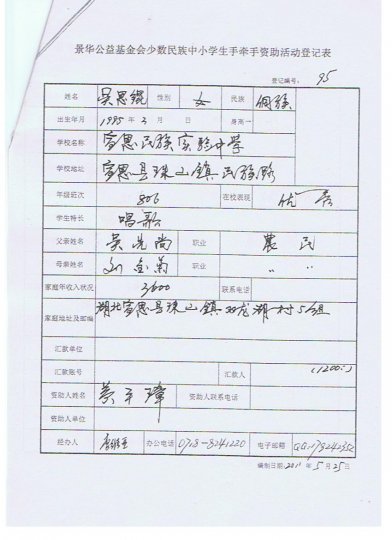 景华公益基金会少数民族中小学生手牵手资助活动登记表
登记编号： 95
姓名 吴思锟 性别 女 民族 侗族
出生年月 1995年3月 日 身高
学校名称 宣恩民族实验中学
学校地址 宣恩县珠山镇民族路
年级班次 806 在校表现 优秀
学生特长 唱歌
父亲姓名 吴先尚 职业 農民
母亲姓名 刘金菊 职业 〃 〃
家庭年收入状况 3600 联系电话
家庭地址及邮编 湖北宣恩县珠山镇双龙湖村5组
汇款单位
汇款账号 汇款人 (1200:)
资助人姓名 资助人联系电话
资助人单位
经办人 办公电话 0718-8241220 电子邮箱 QQ:178242352
编制日期:2011年5月25日